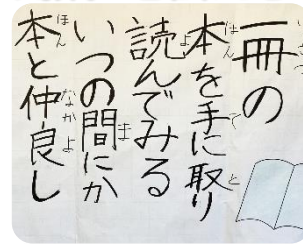 一冊の
本を手に取り
読んでみる
いつの間にか
本と仲良し